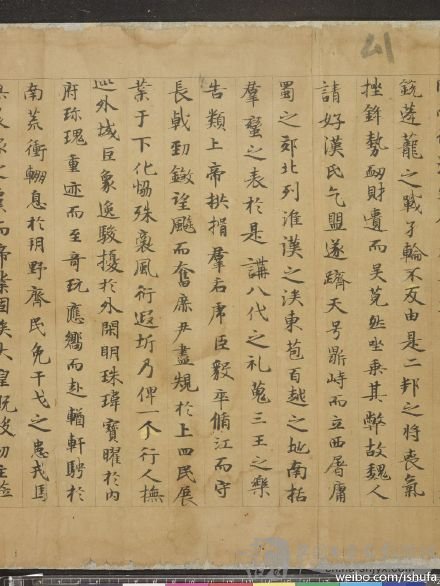 銳蓬蘢之戰孑輪不反由是二邦之將喪氣
挫鋒勢衂財匱而吳莞然坐乘其弊故魏人
請好漢氏乞盟遂躋天号鼎峙而立西屠庸
蜀之郊北列淮漢之涘東苞百越之地南括
羣蠻之表於是講八代之礼蒐三王之樂
告類上帝拱揖羣后虎臣毅卒脩江而守
長戟勁鎩望飈而奮庶尹盡規於上四民展
業于下化協殊裔風衍遐圻乃俾一个行人撫
巡外域巨象逸駿擾於外閑明珠瑋寶曜於內
府珎瑰重迹而至奇玩應嚮而赴輶軒騁於
南荒衝輣息於朔野齊民免干戈之患戎馬
之虞而帝業固矣大皇既歿幼主莅
weibo.com/ishufa